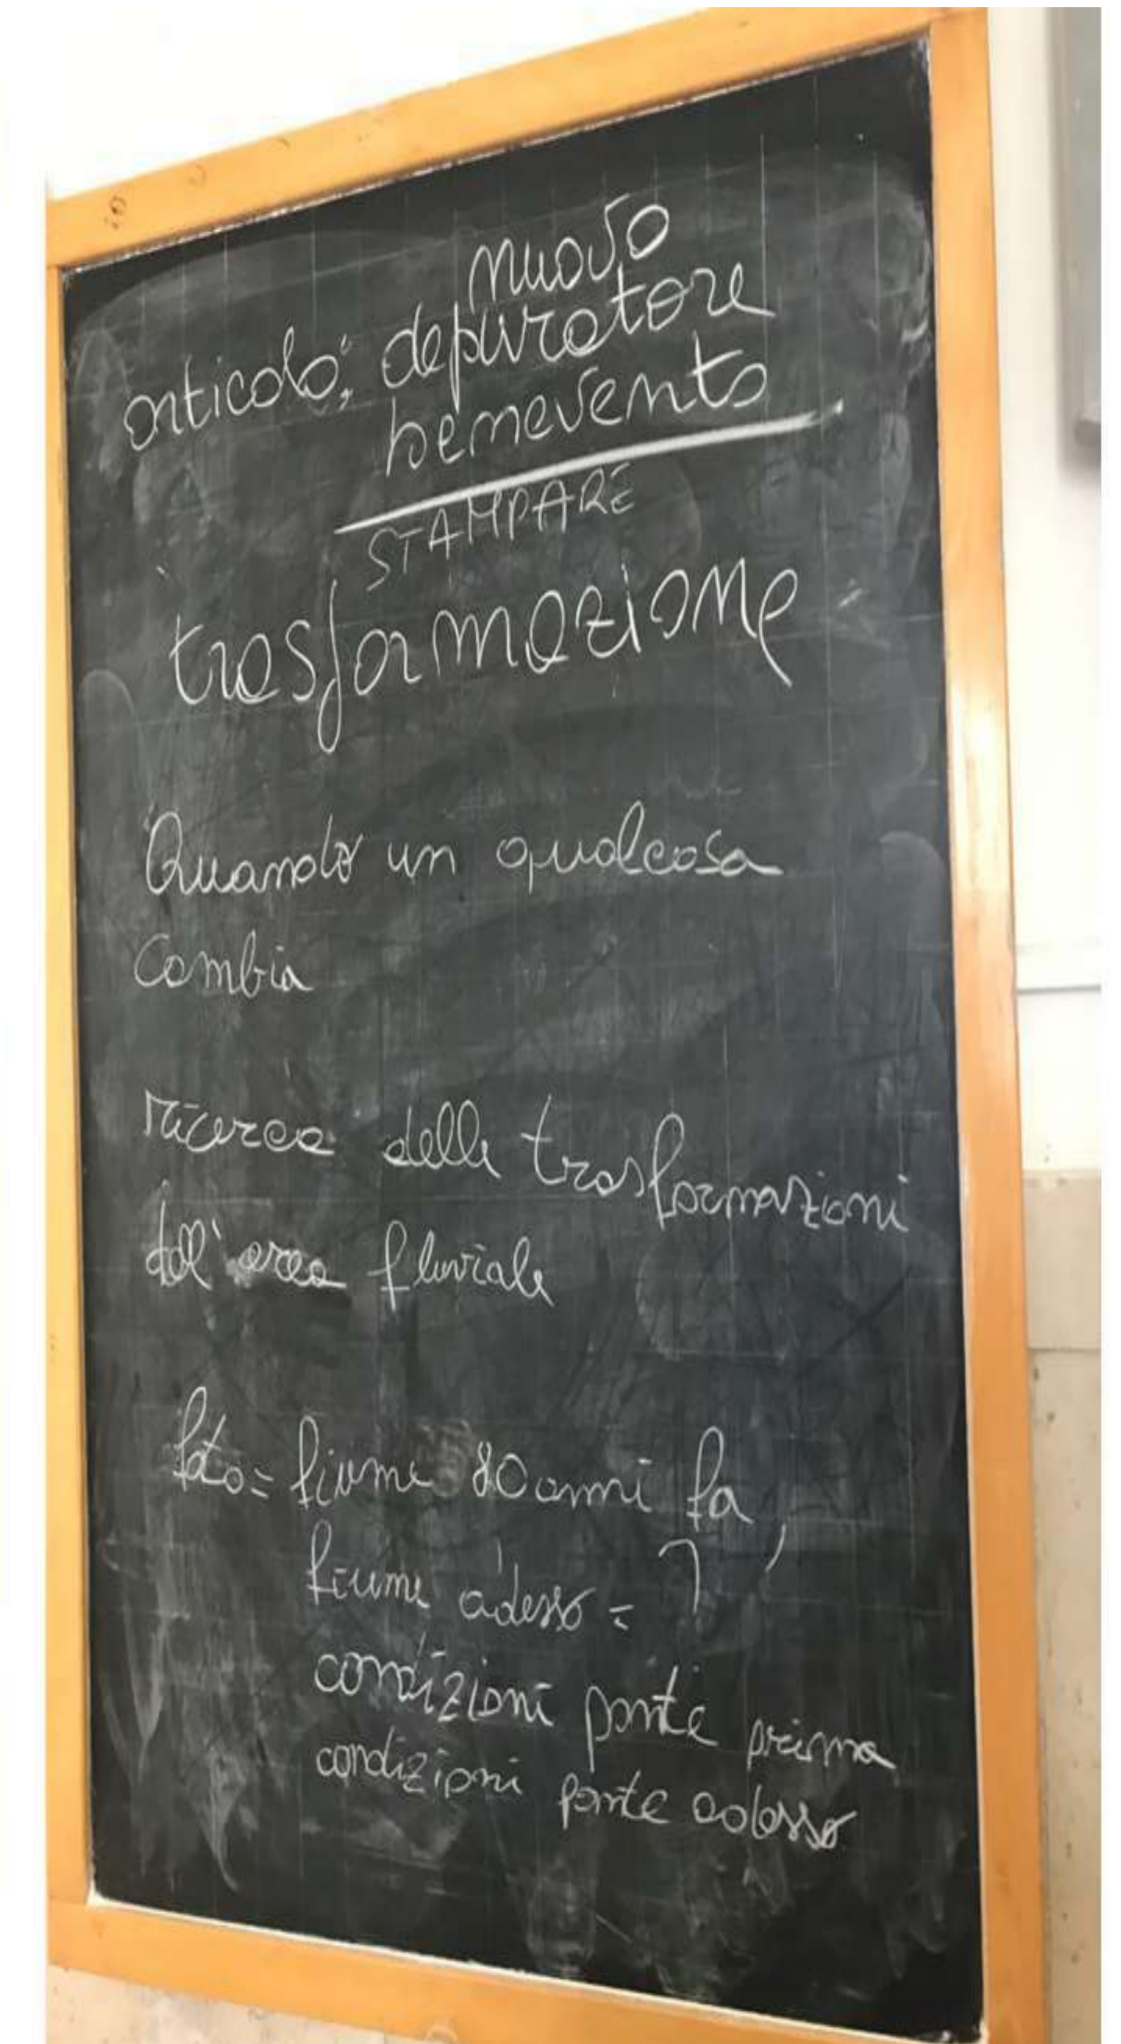 nuovo
articolo; depuratore
benevento
STAMPARE
trasformazione
Quando un qualcosa
cambia
ricerca delle trasformazioni
dell'area fluviale
foto= fiume 80 anni fa,
fiume adesso = ?
condizioni ponte prima
condizioni ponte adesso